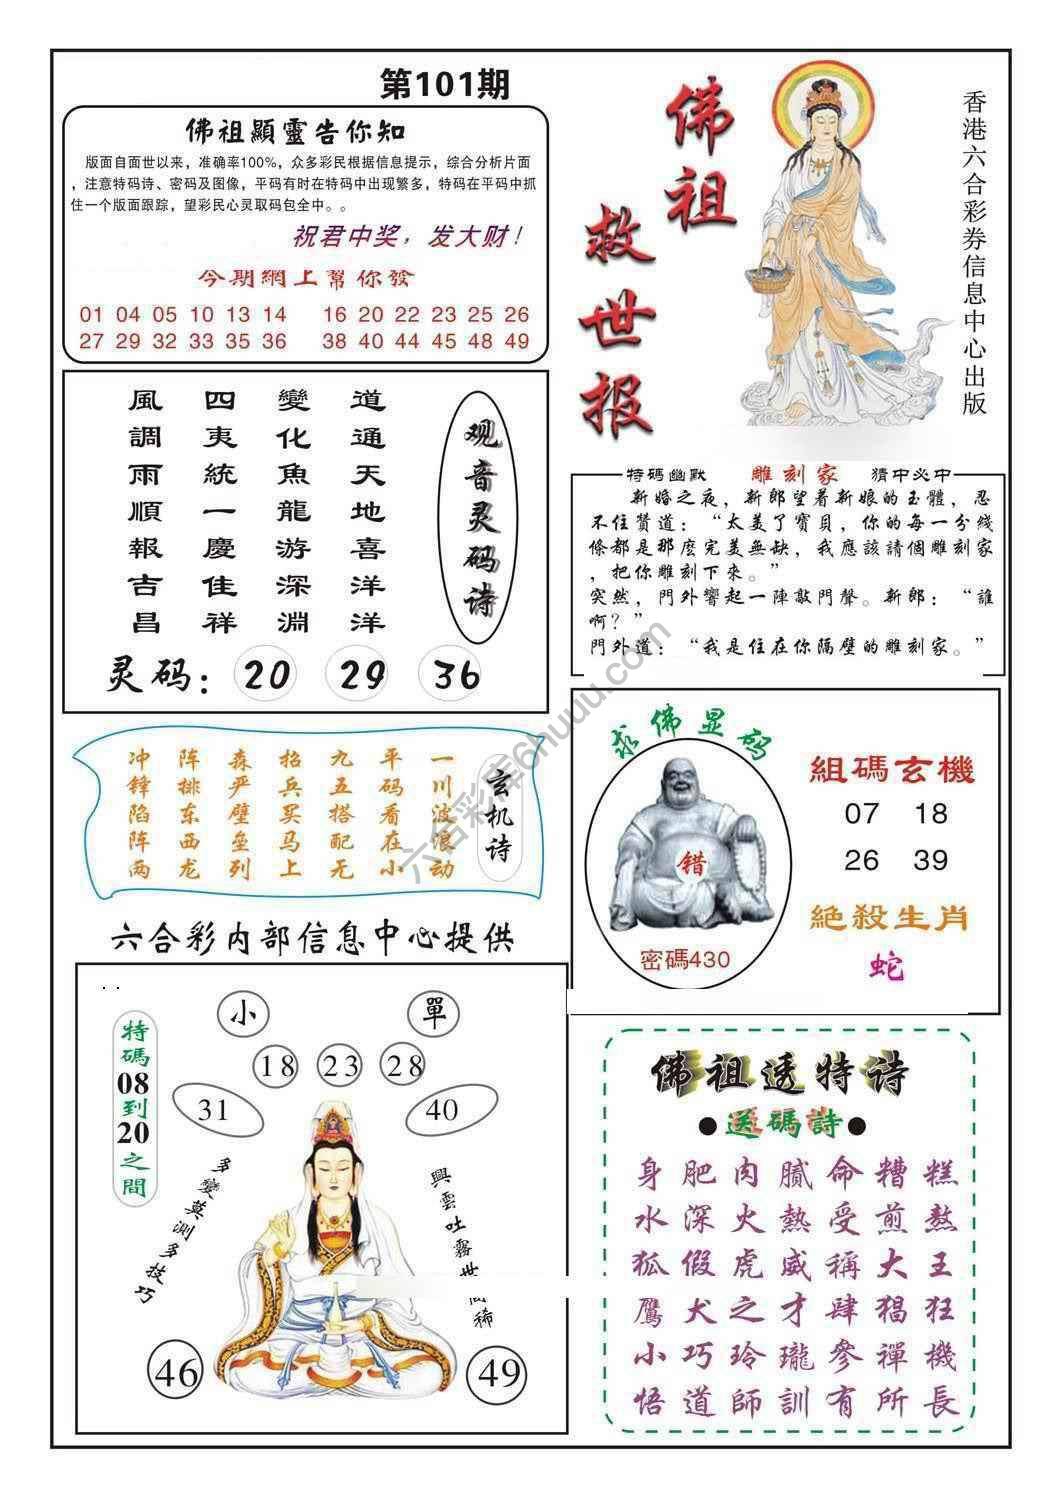 第101期
佛祖顯靈告你知
版面自面世以来，准确率100%，众多彩民根据信息提示，综合分析片面
，注意特码诗、密码及图像，平码有时在特码中出现繁多，特码在平码中抓
住一个版面跟踪，望彩民心灵取码包全中。。
祝君中奖，发大财！
今期網上幫你發
01 04 05 10 13 14 16 20 22 23 25 26
27 29 32 33 35 36 38 40 44 45 48 49
佛祖
救世报
香港六合彩券信息中心出版
观音灵码诗
道通天地喜洋洋
變化魚龍游深淵
四夷統一慶佳祥
風調雨順報吉昌
灵码：20 29 36
特碼幽默 雕刻家 猜中必中
新婚之夜，新郎望着新娘的玉體，忍
不住贊道：“太美了寶貝，你的每一分綫
條都是那麽完美無缺，我應該請個雕刻家
，把你雕刻下來。”
突然，門外響起一陣敲門聲。新郎：“誰
啊？”
門外道：“我是住在你隔壁的雕刻家。”
玄机诗
一川波浪动
平码看在小
九五搭配无
招兵买马上
森严壁垒列
阵排东西龙
冲锋陷阵两
求佛显码
错
密碼430
組碼玄機
07 18
26 39
絕殺生肖
蛇
六合彩内部信息中心提供
特碼08到20之間
小 單
18 23 28
31 40
多變莫測多技巧
興雲吐霧世
稀
46 49
佛祖透特诗
●送碼詩●
身肥肉膩命糟糕
水深火熱受煎熬
狐假虎威稱大王
鷹犬之才肆猖狂
小巧玲瓏參禪機
悟道師訓有所長
六合彩库6huuu.com